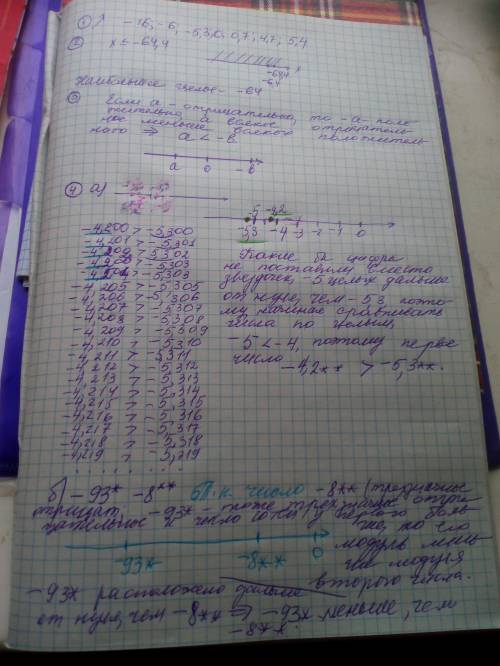 ① -16; -6; -5,3; 0; 0,7; 4,7; 5,4
② x ≤ -64,4
-64,4 x
-64
Наибольшее целое -64
③ Если a - отрицательно, то -a- поло
жительно, а всякое отрицатель
ное меньше всякого положитель
ного ⇒ a < -b
a 0 -b
④ а)
-5 -4,2
-5,3 -4 -3 -2 -1 0
-4,200 > -5,300
-4,201 > -5,301
-4,202 > -5,302
-4,203 > -5,303
-4,204 > -5,303
-4,205 > -5,305
-4,206 > -5,306
-4,207 > -5,307
-4,208 > -5,308
-4,209 > -5,309
-4,210 > -5,310
-4,211 > -5,311
-4,212 > -5,312
-4,213 > -5,313
-4,214 > -5,314
-4,215 > -5,315
-4,216 > -5,316
-4,217 > -5,317
-4,218 > -5,318
-4,219 > -5,319
Какие бы цифры
не поставили вместо
звездочек, -5 целых дальше
от нуля, чем -5 3 поэто
му начинаем сравнивать
числа по целым
-5 < -4, поэтому первое
число
-4,2** > -5,3**.
б) -93* -8** Т.к. число -8** трёхзначное
отрицат, -93* - тоже трёхзначное отри
цательное и число сотен у него боль
ше, то его
модуль
модуля
второго числа.
-93* -8** 0
-93* расположено дальше
от нуля, чем -8** ⇒ -93* меньше, чем
-8**.